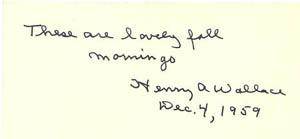 These are lovely fall
mornings
Henry A Wallace
Dec. 4, 1959